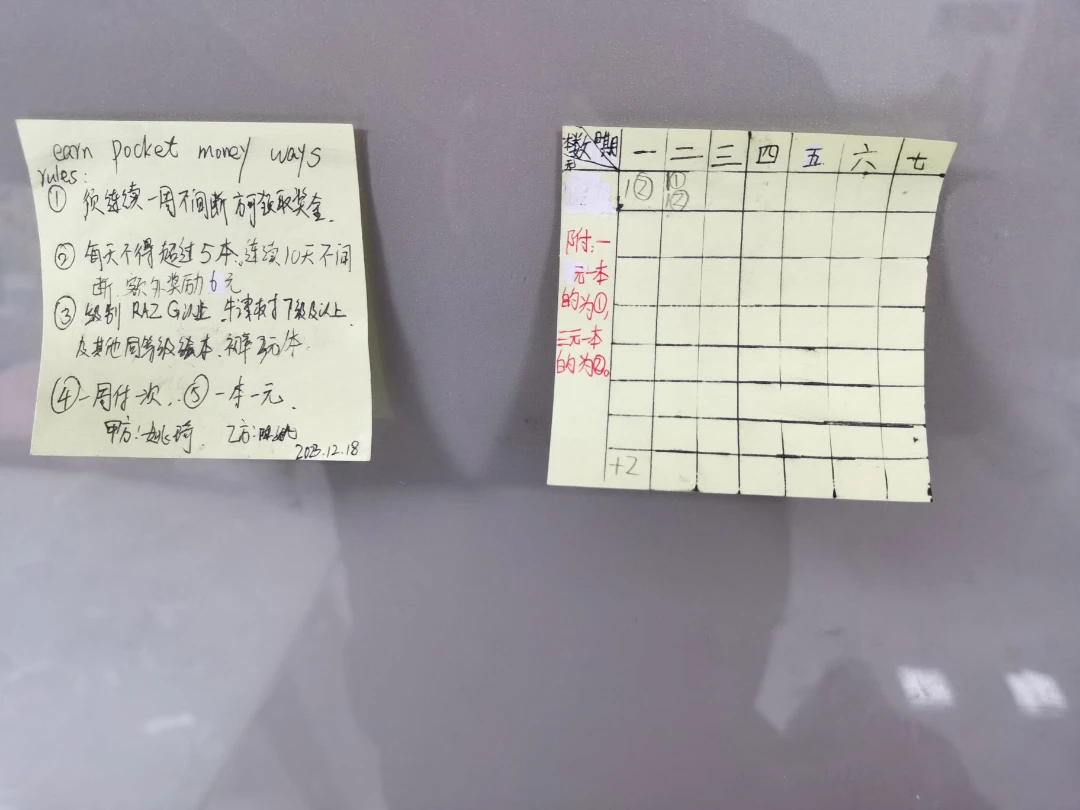 earn pocket money ways
rules:
① 须连续一周不间断方可获取奖金.
② 每天不得超过5本,连续10天不间
断,额外奖励6元
③ 级别 RAZ G以上 牛津树7级及以上
及其他同等级绘本、
④ 一周付一次. ⑤ 一本一元.
甲方: 姚琦. 乙方:
2023.12.18
期 一 二 三 四 五 六 七
数
1② ①
1②
附:一
元一本
的为①,
三元一本
的为②。
+2